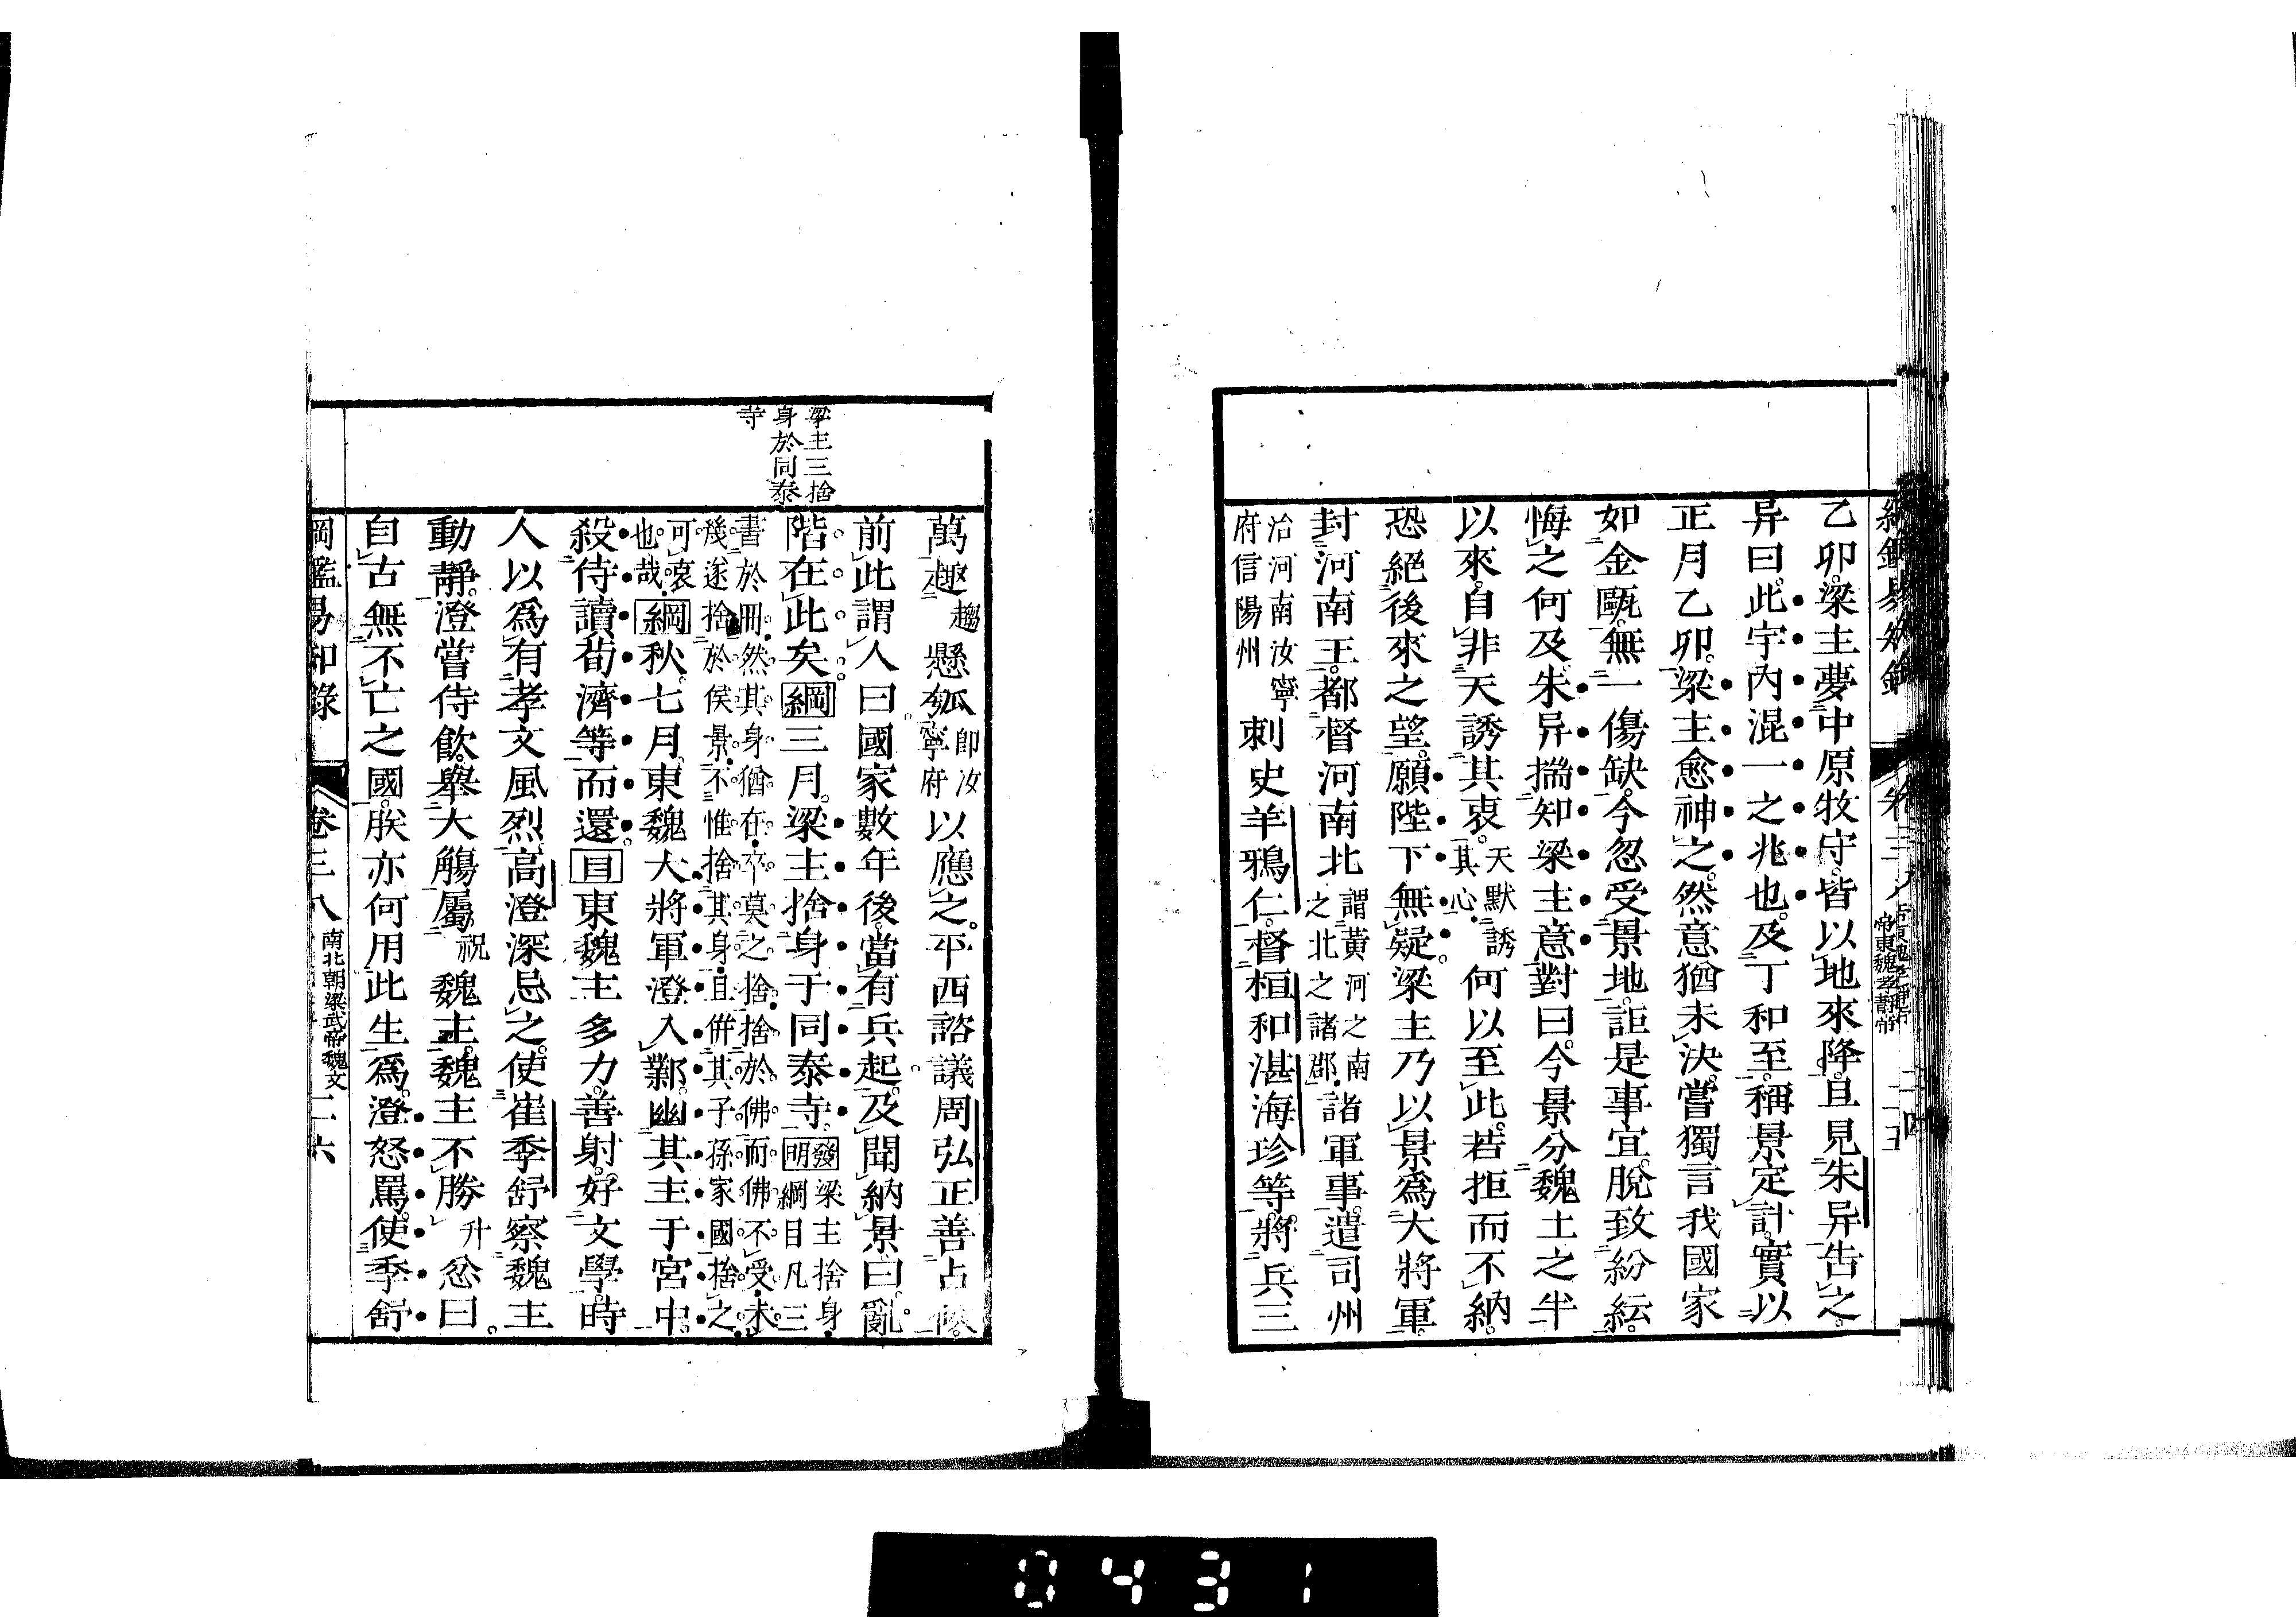 乙卯。梁主夢中原牧守。皆以地來降。且見朱异告之。
异曰。此宇內混一之兆也。及丁和至。稱景定計。實以
正月乙卯。梁主愈神之。然意猶未決。嘗獨言我國家
如金甌。無一傷缺。今忽受景地。詎是事宜。脫致紛紜。
悔之何及。朱异揣知梁主意。對曰。今景分魏土之半
以來。自非天誘其衷。天默誘其心。何以至此。若拒而不納
恐絕後來之望。願陛下無疑。梁主乃以景爲大將軍。
封河南王。都督河南北謂黃河之南之北之諸郡。諸軍事。遣司州
治河南汝寧府信陽州刺史羊鴉仁。督桓和湛海珍等。將兵三
萬趣趨懸瓠卽汝寧府以應之。平西諮議周弘正善占候。
前此謂人曰國家數年後。當有兵起。及聞納景曰。亂
階在此矣。綱三月。梁主捨身于同泰寺。發明梁主捨身。綱目凡三
書於冊。然其身猶在。卒莫之捨。捨於佛而佛不受。未
幾遂捨於侯景。不惟捨其身。且併其子孫家國捨之。
可哀也哉。綱秋。七月。東魏大將軍澄入鄴。幽其主于宮中。
殺侍讀荀濟等而還。目東魏主多力。善射。好文學。時
人以爲有孝文風烈。高澄深忌之。使崔季舒察魏主
動靜。澄嘗侍飮。舉大觴屬祝魏主。魏主不勝升忿曰。
自古無不亡之國。朕亦何用此生爲。澄怒罵。使季舒
梁主三捨
身於同泰
寺
綱鑑易知錄 卷三八 南北朝梁武帝魏文 二六